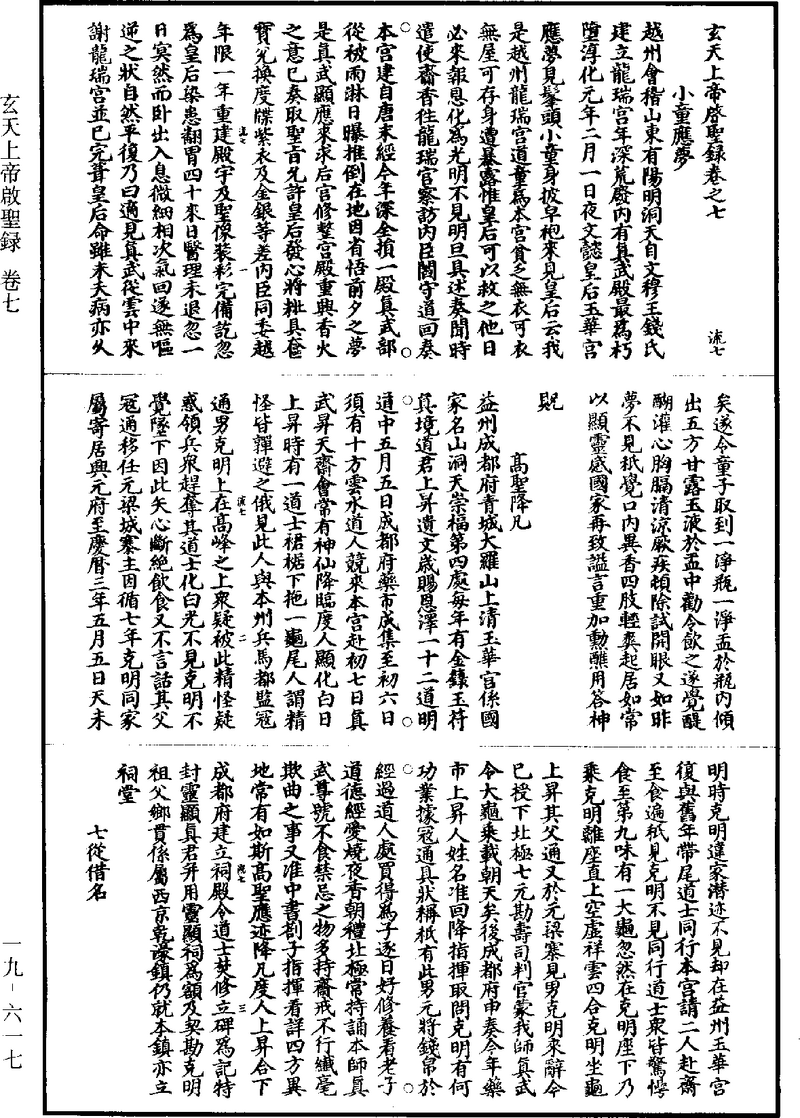 玄天上帝啟聖録 卷七
一九－六一七
玄天上帝啓聖録卷之七
流七
小童應夢
越州會稽山東有陽明洞天自文穆王錢氏
建立龍瑞宮年深荒廢内有真武殿最爲朽
墮淳化元年二月一日夜文懿皇后玉華宮
應夢見髽頭小童身披皁袍來見皇后云我
是越州龍瑞宮道童爲本宮貧乏無衣可衣
無屋可存身遭暴露惟皇后可以救之他日
必來報恩化爲光明不見明旦具述奏聞時
遣使齋香往龍瑞宮察訪内臣閻守道回奏
本宮建自唐末經今年深全損一殿真武部
從被雨淋日曝推倒在地因省悟前夕之夢
是真武顯應來求后宮修整宮殿重興香火
之意已奏取聖旨允許皇后發心將粃具奩
寶先換度牒紫衣及金銀等差内臣同委越
流七
一
年限一年重建殿宇及聖像裝彩完備訖忽
爲皇后染患翻胃四十來日醫理未退忽一
日㝠然而卧出入息微細相次氣回遂無嘔
逆之狀自然平復乃曰適見真武從雲中來
謝龍瑞宮並已完葺皇后命雖未夭病亦久
矣遂令童子取到一淨瓶一淨盂於瓶内傾
出五方甘露玉液於盂中勸令飲之遂覺醍
醐灌心胸膈清涼厥疾頓除試開眼又如昨
夢不見祇覺口内異香四肢輕爽起居如常
以顯靈感國家再致謚言重加勳醮用答神
貺
高聖降凡
益州成都府青城大羅山上清玉華宮係國
家名山洞天崇福第四處每年有金籙玉符
真境道君上昇遺文歲賜恩澤一十二道明
道中五月五日成都府藥市成集至初六日
須有十方雲水道人競來本宮赴初七日真
武昇天齋會常有神仙降臨度人顯化白日
上昇時有一道士裙裾下拖一龜尾人謂精
怪皆譁避之俄見此人與本州兵馬都監冦
流七
二
通男克明上在高峰之上衆疑被此精怪疑
惑領兵衆趕奪其道士化白光不見克明不
覺墜下因此失心斷絶飲食又不言話其父
冦通移任元梁城寨主因循七年克明同家
屬寄居興元府至慶曆三年五月五日天未
明時克明違家潛迹不見却在益州玉華宮
復與舊年帶尾道士同行本宮請二人赴齋
至食遍祇見克明不見同行道士衆皆驚愕
食至第九味有一大龜忽然在克明座下乃
乘克明離座直上空虚祥雲四合克明坐龜
上昇其父通又於元梁寨見男克明來辭今
已授下北極七元勘壽司判官蒙我師真武
令大龜乘載朝天矣後成都府申奏今年藥
市上昇人姓名准回降指揮取問克明有何
功業據冦通具狀稱祇有此男元將錢帛於
經過道人處買得爲子逐日好修養看老子
道德經愛燒夜香朝禮北極常持誦本師真
武尊號不食禁忌之物多持齋戒不行纎毫
欺曲之事又准中書劄子指揮看詳四方異
地常有如斯髙聖應迹降凡度人上昇合下
流七
三
成都府建立祠殿令道士焚修立碑爲記特
封靈顯真君并用靈顯祠爲額及契勘克明
祖父鄉貫係屬西京乾濠鎮仍就本鎮亦立
祠堂
七從借名